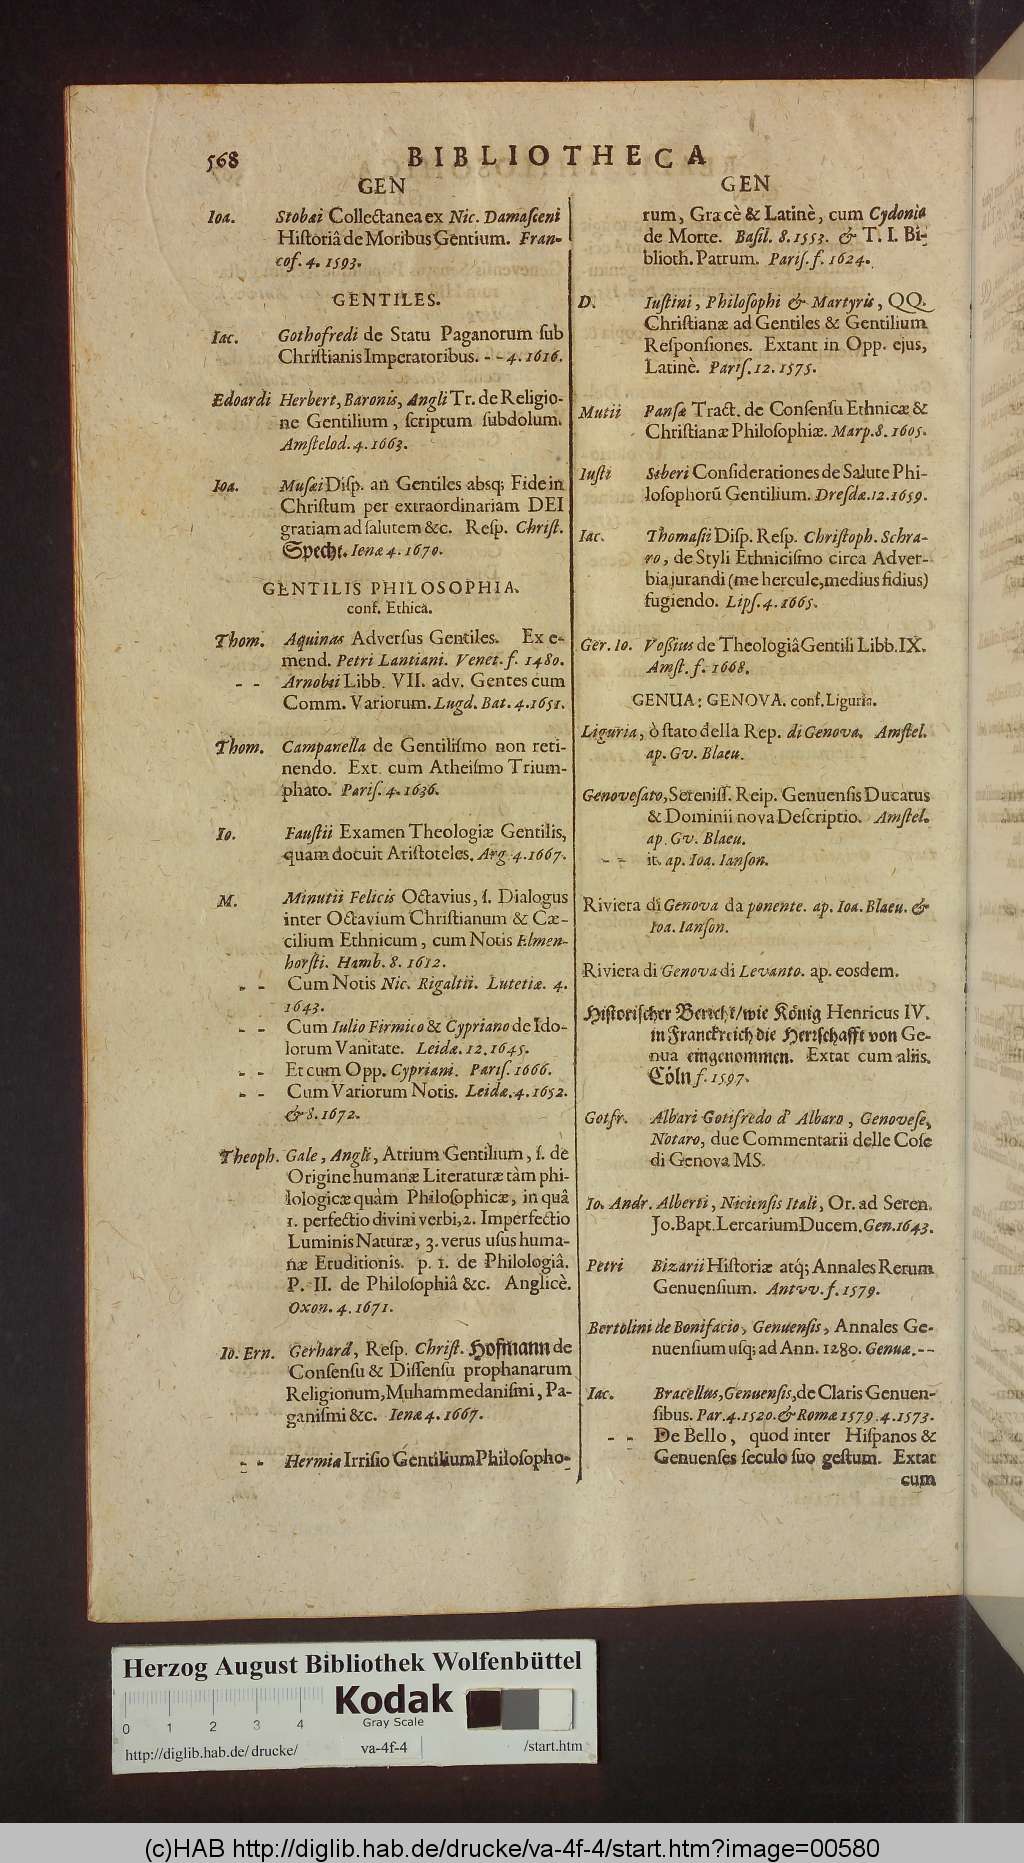 568 BIBLIOTHECA
GEN
Ioa. Stobæi Collectanea ex Nic. Damasceni
Historiâ de Moribus Gentium. Fran-
cof. 4. 1593.
GENTILES.
Iac. Gothofredi de Statu Paganorum sub
Christianis Imperatoribus. - - 4. 1616.
Edoardi Herbert, Baronis, Angli Tr. de Religio-
ne Gentilium, scriptum subdolum.
Amstelod. 4. 1663.
Ioa. Musæi Disp. an Gentiles absq; Fide in
Christum per extraordinariam DEI
gratiam ad salutem &c. Resp. Christ.
Specht. Ienæ 4. 1670.
GENTILIS PHILOSOPHIA.
conf. Ethica.
Thom. Aquinas Adversus Gentiles. Ex e-
mend. Petri Lantiani. Venet. f. 1480.
- - Arnobii Libb. VII. adv. Gentes cum
Comm. Variorum. Lugd. Bat. 4. 1651.
Thom. Campanella de Gentilismo non reti-
nendo. Ext. cum Atheismo Trium-
phato. Paris. 4. 1636.
Io. Faustii Examen Theologiæ Gentilis,
quam docuit Aristoteles. Arg. 4. 1667.
M. Minutii Felicis Octavius, s. Dialogus
inter Octavium Christianum & Cæ-
cilium Ethnicum, cum Notis Elmen-
horsti. Hamb. 8. 1612.
- - Cum Notis Nic. Rigaltii. Lutetiæ. 4.
1643.
- - Cum Iulio Firmico & Cypriano de Ido-
lorum Vanitate. Leidæ. 12. 1645.
- - Et cum Opp. Cypriani. Paris. 1666.
- - Cum Variorum Notis. Leidæ. 4. 1652.
& 8. 1672.
Theoph. Gale, Angli, Atrium Gentilium, s. de
Origine humanæ Literaturæ tàm phi-
lologicæ quàm Philosophicæ, in quâ
1. perfectio divini verbi, 2. Imperfectio
Luminis Naturæ, 3. verus usus huma-
næ Eruditionis. p. 1. de Philologiâ.
P. II. de Philosophiâ &c. Anglicè.
Oxon. 4. 1671.
Io. Ern. Gerhard, Resp. Christ. Hofmann de
Consensu & Dissensu prophanarum
Religionum, Muhammedanismi, Pa-
ganismi &c. Ienæ 4. 1667.
- - Hermiæ Irrisio Gentilium Philosopho-
GEN
rum, Græcè & Latinè, cum Cydonio
de Morte. Basil. 8. 1553. & T. I. Bi-
blioth. Patrum. Paris. f. 1624.
D. Iustini, Philosophi & Martyris, QQ.
Christianæ ad Gentiles & Gentilium
Responsiones. Extant in Opp. ejus,
Latinè. Paris. 12. 1575.
Mutii Pansæ Tract. de Consensu Ethnicæ &
Christianæ Philosophiæ. Marp. 8. 1605.
Iusti Siberi Considerationes de Salute Phi-
losophorũ Gentilium. Dresdæ. 12. 1659.
Iac. Thomasii Disp. Resp. Christoph. Schra-
ro, de Styli Ethnicismo circa Adver-
bia jurandi (me hercule, medius fidius)
fugiendo. Lips. 4. 1665.
Ger. Io. Vossius de Theologiâ Gentili Libb. IX.
Amst. f. 1668.
GENUA: GENOVA. conf. Liguria.
Liguria, ò stato della Rep. di Genova. Amstel.
ap. Gv. Blaeu.
Genovesato, Sereniss. Reip. Genuensis Ducatus
& Dominii nova Descriptio. Amstel.
ap. Gv. Blaeu.
- - it. ap. Ioa. Ianson.
Riviera di Genova da ponente. ap. Ioa. Blaeu. &
Ioa. Ianson.
Riviera di Genova di Levanto. ap. eosdem.
Historischer Bericht/ wie König Henricus IV.
in Franckreich die Herrschafft von Ge-
nua eingenommen. Extat cum aliis.
Cöln f. 1597.
Gotfr. Albari Gotifredo d' Albaro, Genovese,
Notaro, due Commentarii delle Cose
di Genova MS.
Io. Andr. Alberti, Niciensis Itali, Or. ad Seren.
Jo. Bapt. Lercarium Ducem. Gen. 1643.
Petri Bizarii Historiæ atq; Annales Rerum
Genuensium. Antvv. f. 1579.
Bertolini de Bonifacio, Genuensis, Annales Ge-
nuensium usq; ad Ann. 1280. Genuæ. - -
Iac. Bracellus, Genuensis, de Claris Genuen-
sibus. Par. 4. 1520. & Romæ 1579. 4. 1573.
- - De Bello, quod inter Hispanos &
Genuenses seculo suo gestum. Extat
cum
Herzog August Bibliothek Wolfenbüttel
0 1 2 3 4
Kodak
Gray Scale
http://diglib.hab.de/drucke/ va-4f-4 /start.htm
(c)HAB http://diglib.hab.de/drucke/va-4f-4/start.htm?image=00580